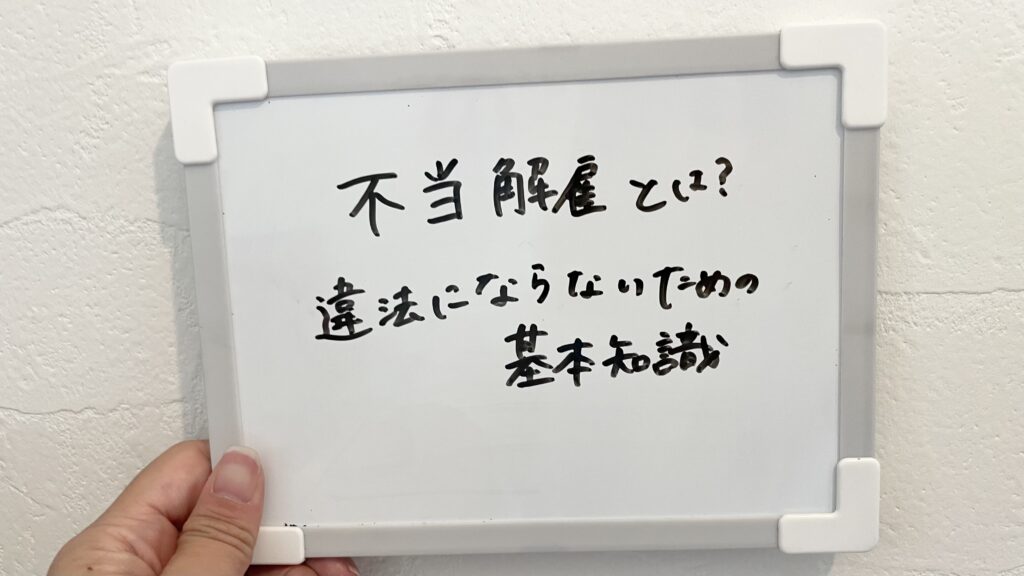 不当解雇とは?
違法にならないための
基本知識